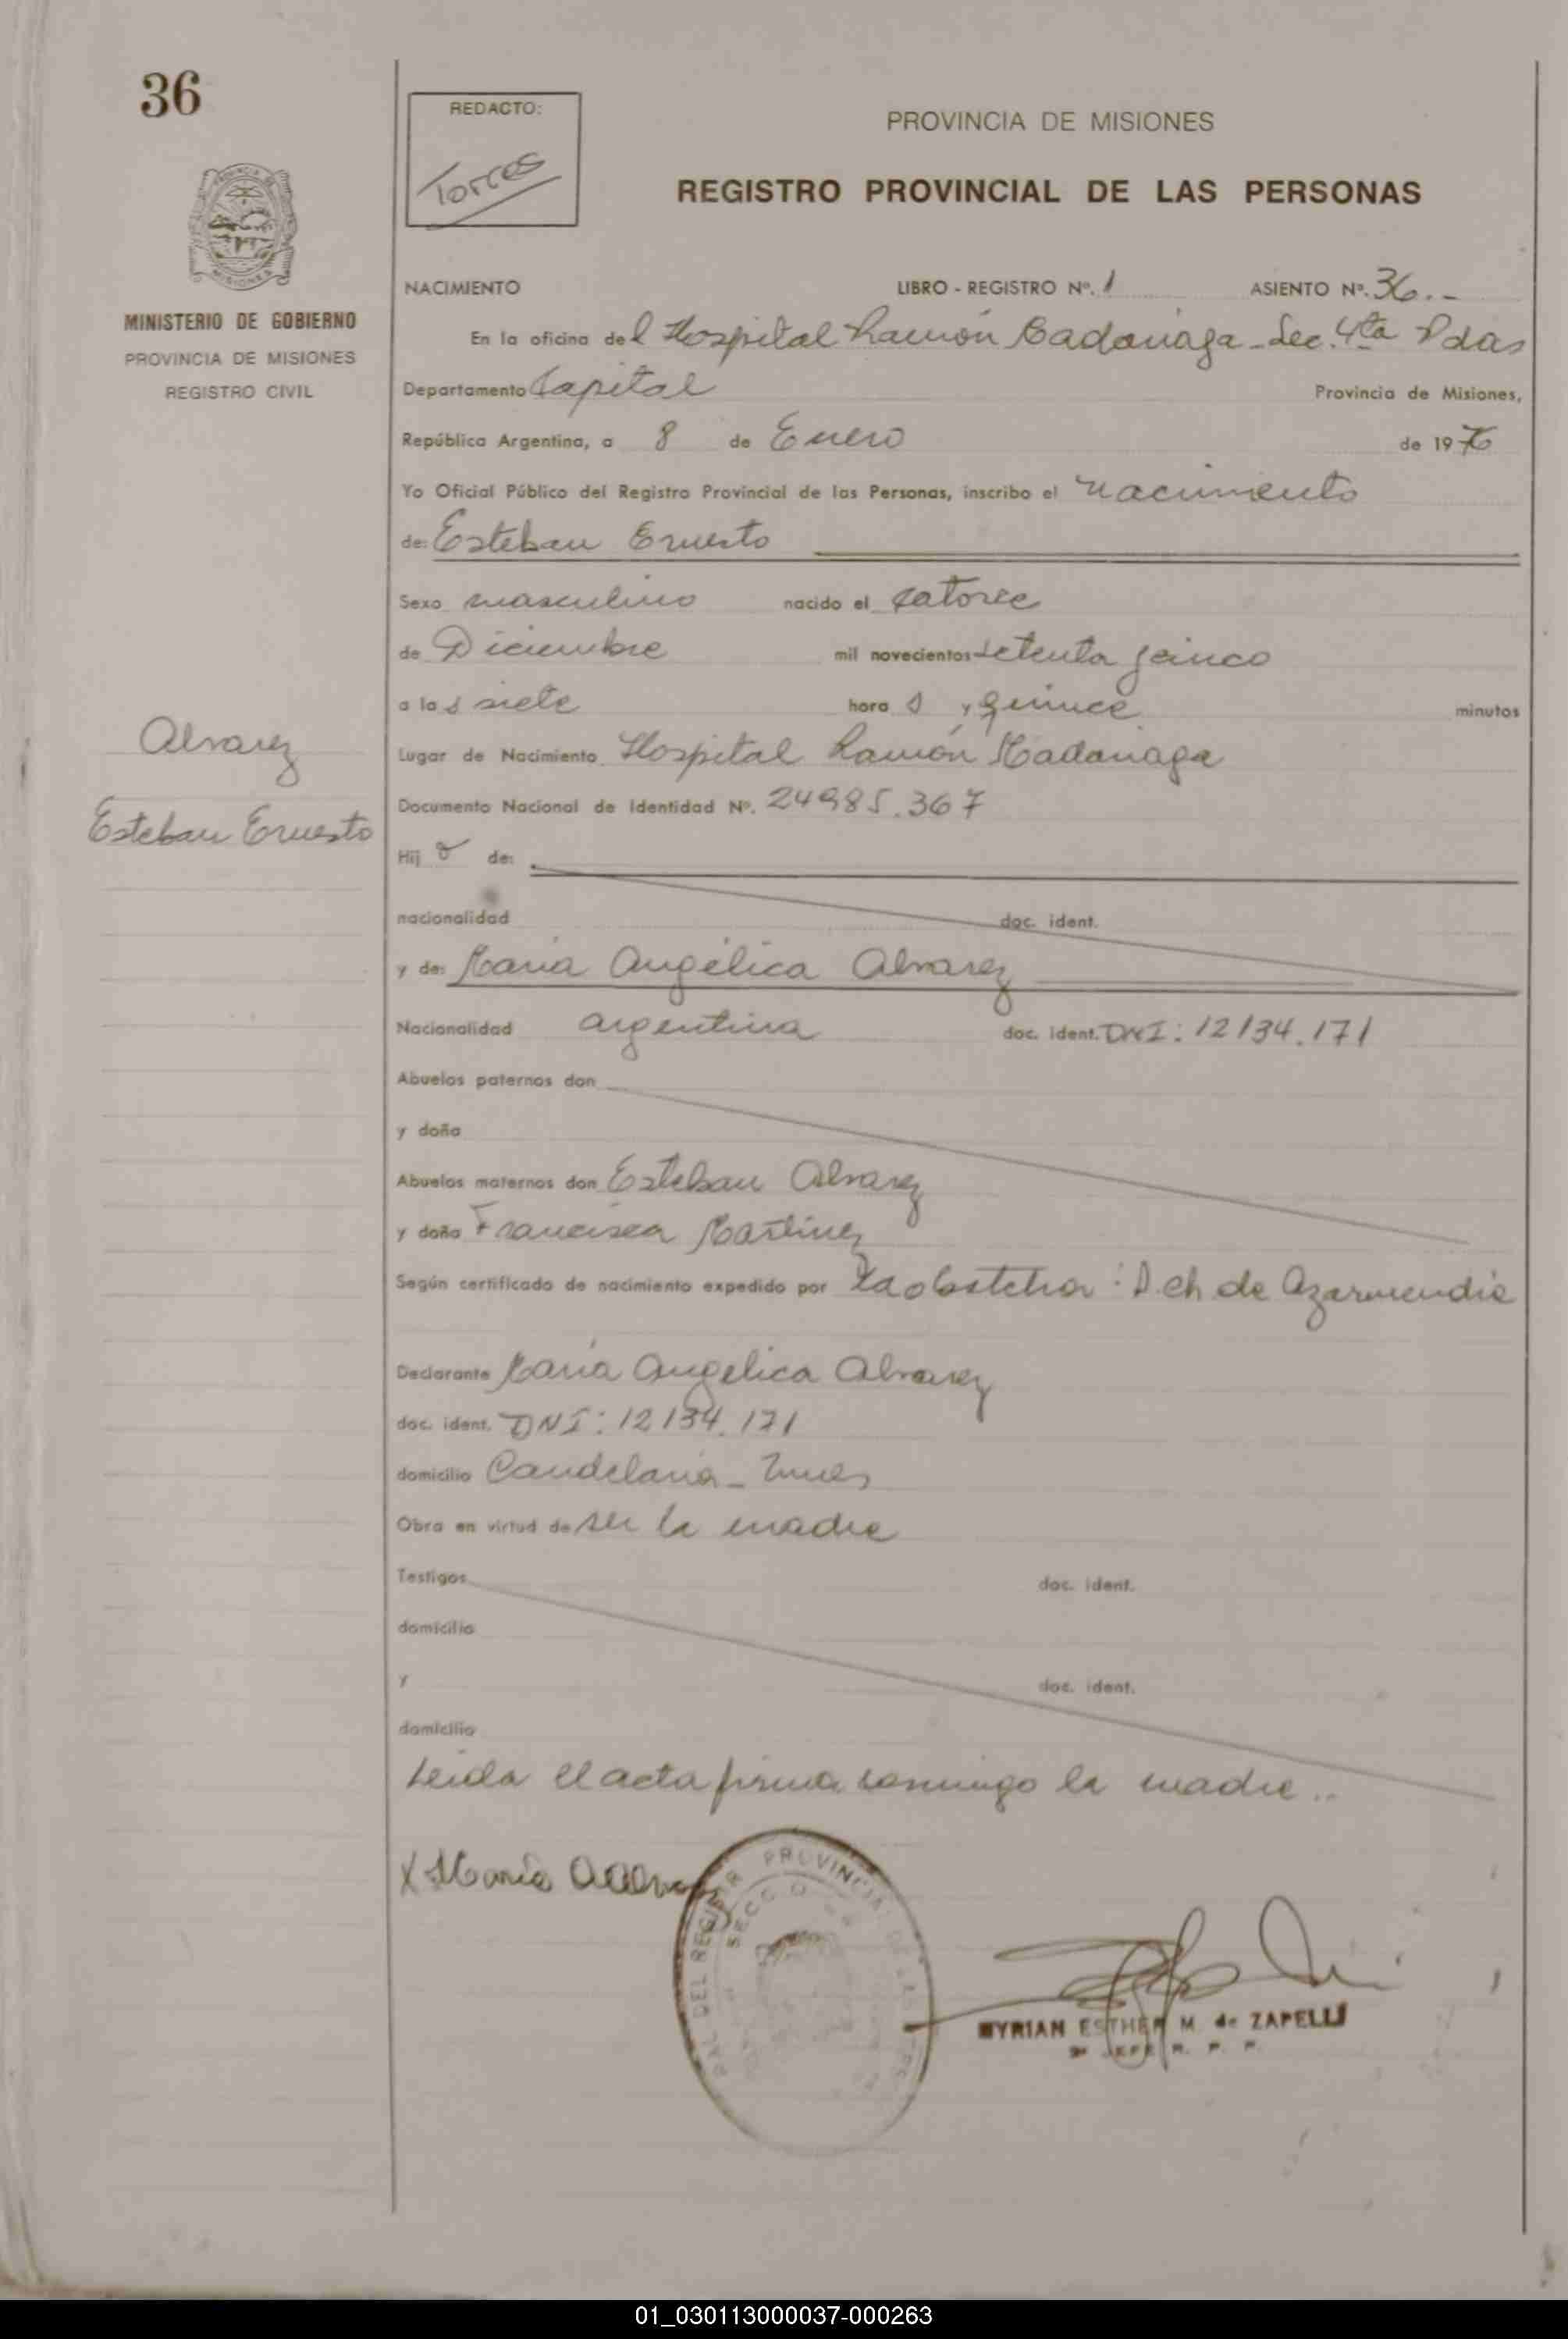 36
MINISTERIO DE GOBIERNO
PROVINCIA DE MISIONES
REGISTRO CIVIL
Alvarez
Esteban Ernesto
REDACTO:
Torres
PROVINCIA DE MISIONES
REGISTRO PROVINCIAL DE LAS PERSONAS
NACIMIENTO LIBRO - REGISTRO Nº. 1 ASIENTO Nº. 36.-
En la oficina del Hospital Ramón Madariaga - Sec. 4ta Pdas
Departamento Capital Provincia de Misiones,
República Argentina, a 8 de Enero de 1976
Yo Oficial Público del Registro Provincial de las Personas, inscribo el nacimiento
de: Esteban Ernesto
Sexo masculino nacido el catorce
de Diciembre mil novecientos setenta y cinco
a las siete horas y quince minutos
Lugar de Nacimiento Hospital Ramón Madariaga
Documento Nacional de Identidad Nº. 24985.367
Hij o de:
nacionalidad doc. ident.
y de: María Angélica Alvarez
Nacionalidad argentina doc. ident. DNI: 12134.171
Abuelos paternos don
y doña
Abuelos maternos don Esteban Alvarez
y doña Francisca Martinez
Según certificado de nacimiento expedido por la obstetra: D. ch de Azarmendia
Declarante María Angelica Alvarez
doc. ident. DNI: 12134.171
domicilio Candelaria - Mnes
Obra en virtud de ser la madre
Testigos doc. ident.
domicilio
y doc. ident.
domicilio
Leida el acta firma conmigo la madre..
X María Alvarez
PROVINCIAL
SECC
MYRIAN ESTHER M. de ZAPELLI
JEFE R. P. P.
01_030113000037-000263